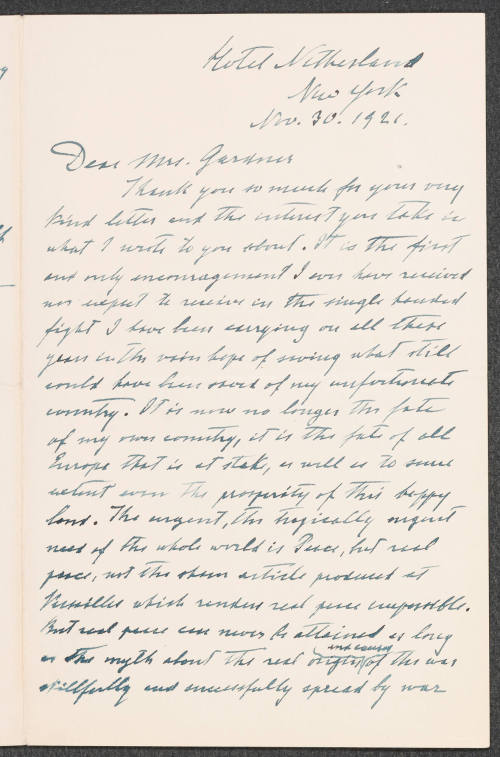 Hotel Netherland
New York
Nov. 30. 1921.
Dear Mrs. Gardner
Thank you so much for your very
kind letter and the interest you take in
what I wrote to you about. It is the first
and only encouragement I ever have received
nor expect to receive in the single handed
fight I have been carrying on all these
years in the vain hope of saving what still
could have been saved of my unfortunate
country. It is now no longer the fate
of my own country, it is the fate of all
Europe that is at stake, as well as to some
extent even the prosperity of this happy
land. The urgent, the tragically urgent
need of the whole world is Peace, but real
peace, not the sham article produced at
Versailles which renders real peace impossible.
But real peace can never be attained as long
and causes
as the myth about the real origins of the war
skillfully and successfully spread by war